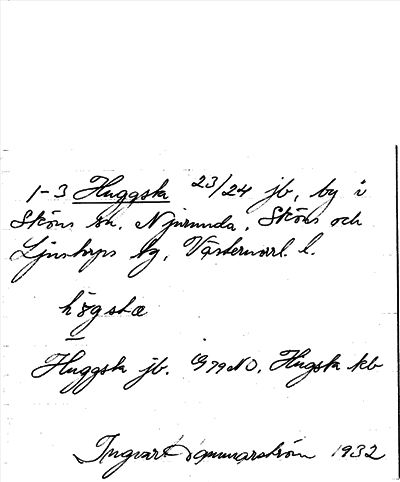 1-3 Huggsta 23/24 jb, by i
Sköns sn, Njurunda, Sköns och
Ljustorps tg, Västernorrl. l.
högsta
Huggsta jb. G79NO, Hugsta kb
Ingvar 1932